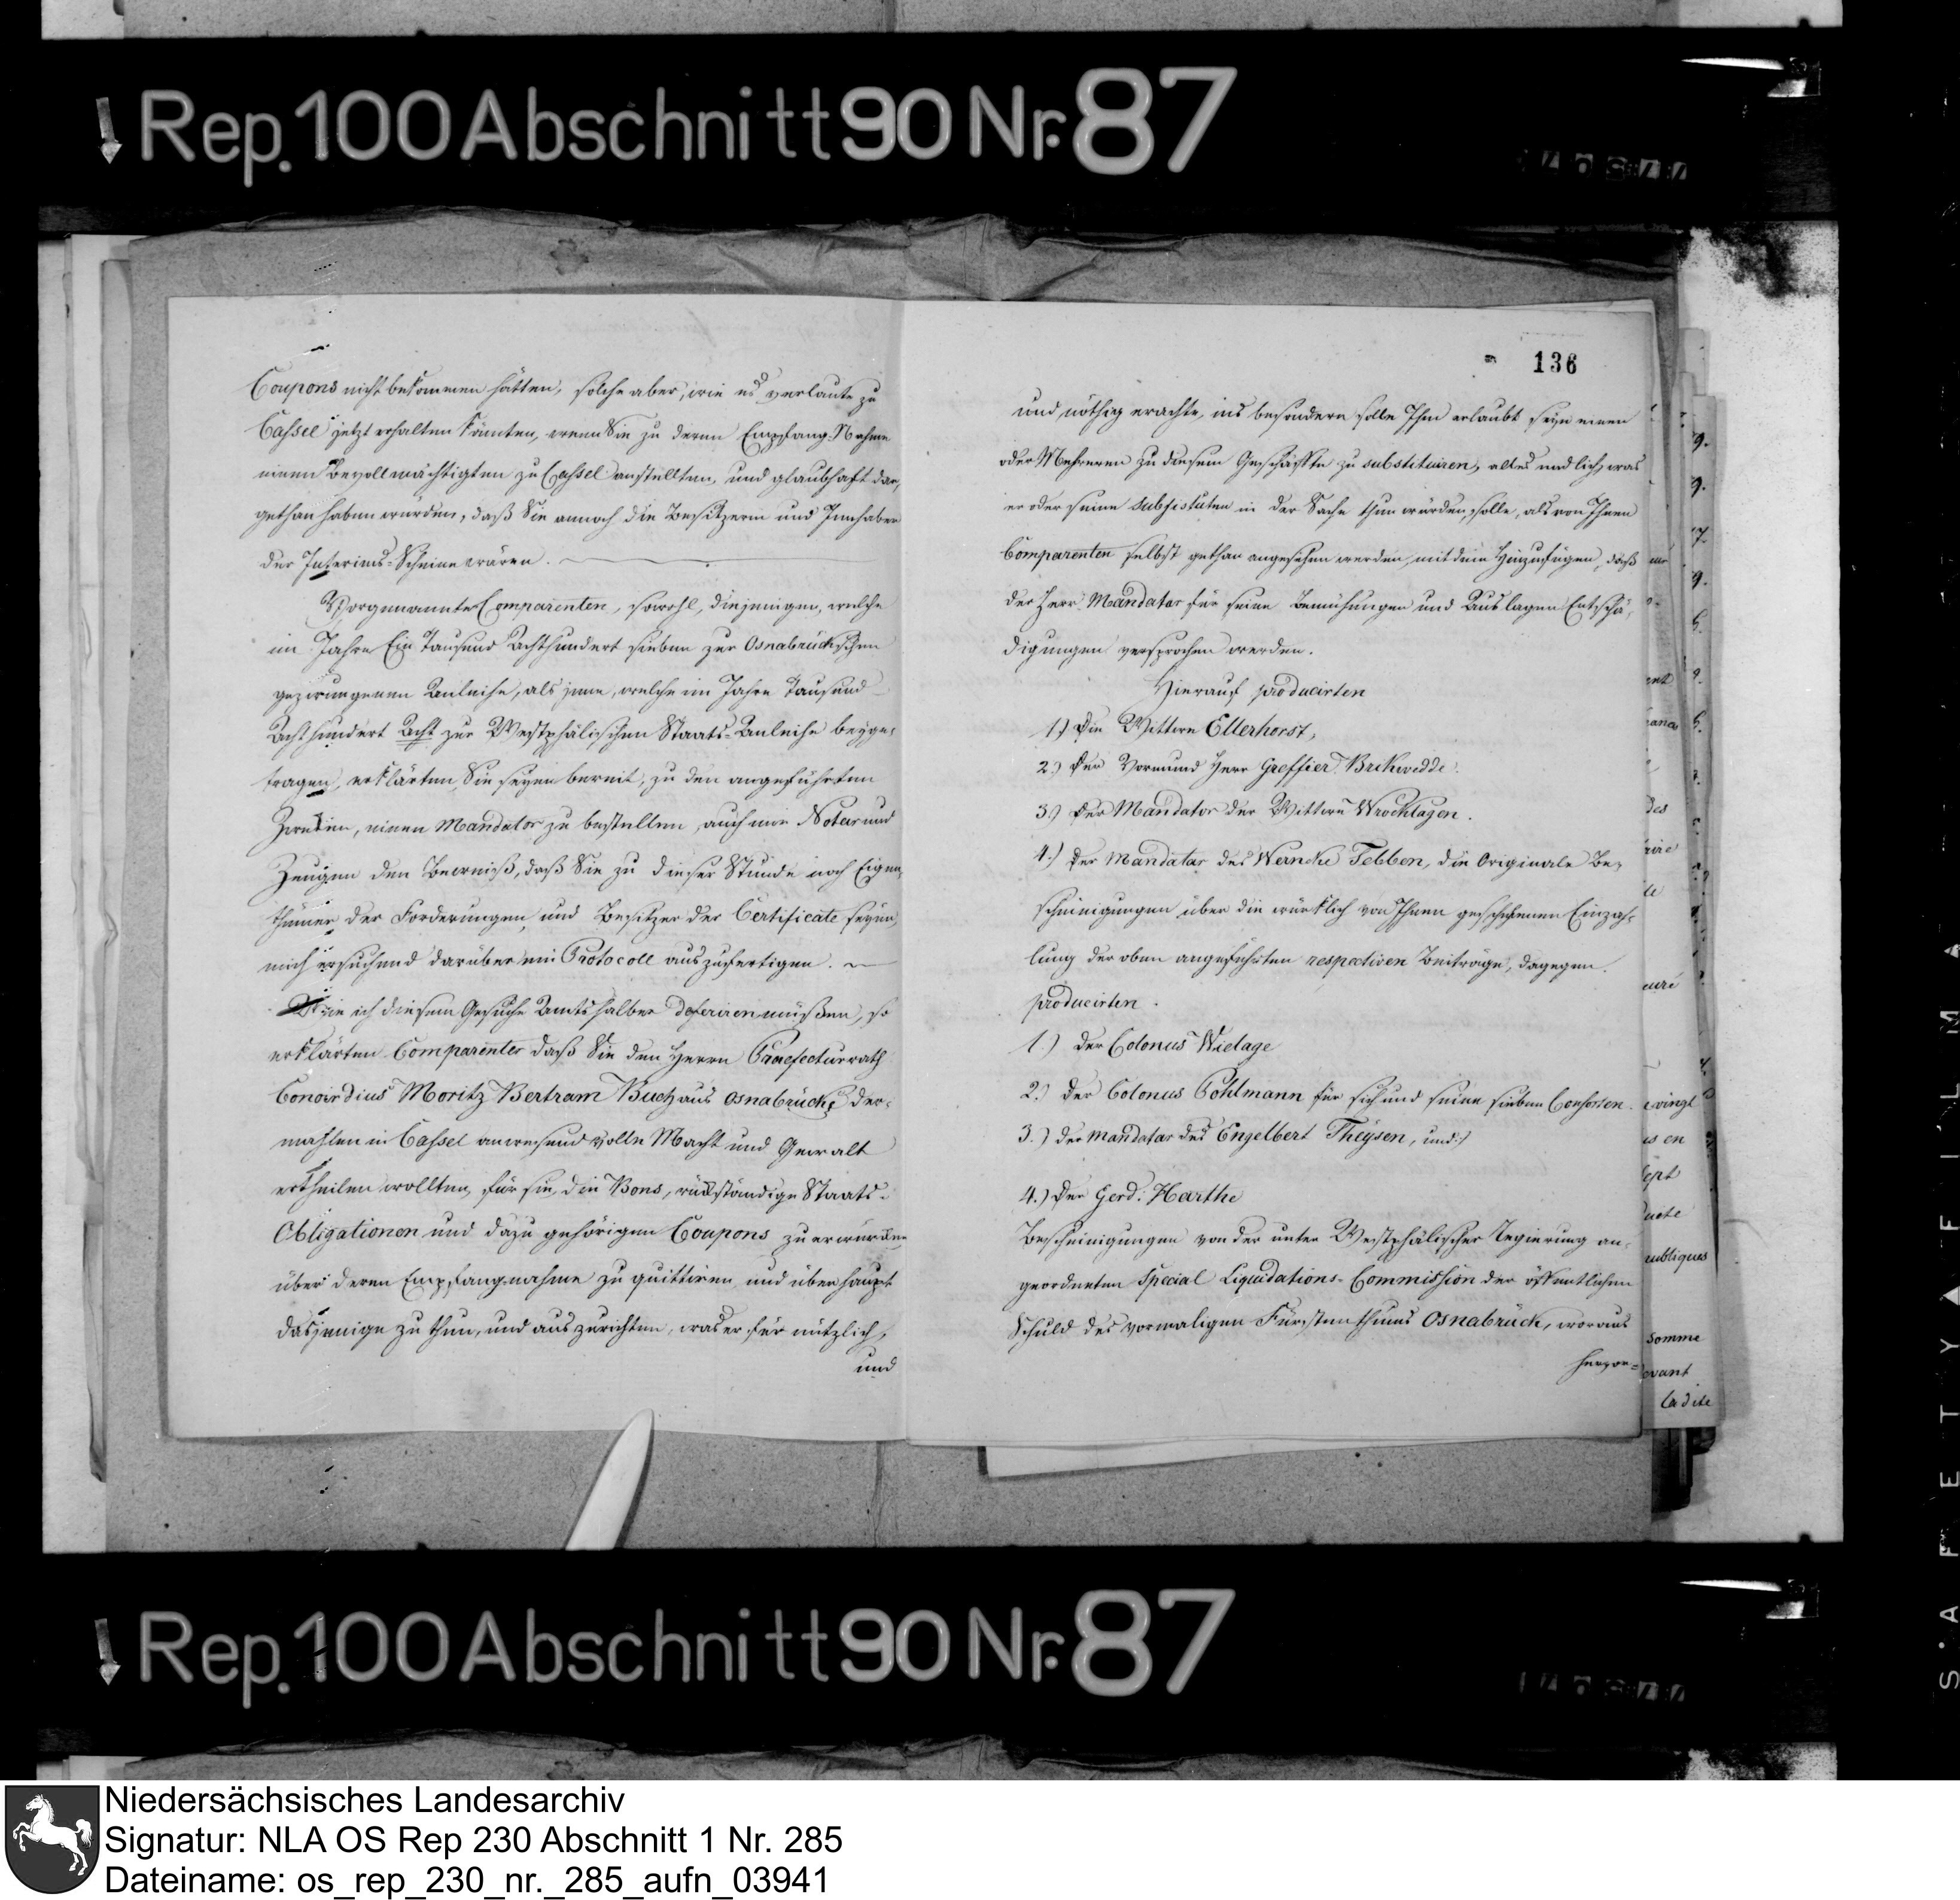 Rep. 100 Abschnitt 90 Nr. 87
Coupons nicht bekommen hätten, solche aber, wie es verlaute zu
Cassel jetzt erhalten könnten, wenn Sie zu deren Empfang-Nahme
einen Bevollmächtigten zu Cassel anstellten, und glaubhaft dar,
gethan haben würden, daß Sie annoch die Besitzerin und Innhaber
der Interims-Scheine wären.
Vorgenannte Comparenten, sowohl, diejenigen, welche
im Jahre Ein Tausend Achthundert sieben zur Osnabrückschen
gezwungenen Anleihe, als jene, welche im Jahre Tausend
Acht hundert Acht zur Westphälischen Staats-Anleihe beyge-
tragen, erklärten, Sie seyen bereit, zu den angeführten
Zwecken, einen Mandatar zu bestellen, auch mir Notar und
Zeugen den Beweiß, daß Sie zu dieser Stunde noch Eigen,
thümer der Forderungen, und Besitzer der Certificate seyen,
mich ersuchend darüber ein Protocoll auszufertigen.
Wie ich diesem Gesuche Amtshalber deferiren müßen, so
erklärten Comparenten daß Sie den Herrn Praefecturrath
Moritz Bertram Buch aus Osnabrück, der-
mahlen in Cassel anwesend volle Macht und Gewalt
ertheilen wollten, für sie, die Bons, rückständige Staats-
Obligationen und dazu gehörigen Coupons zu erwürken
über deren Empfangnahme zu quittiren und überhaupt
dasjenige zu thun, und auszurichten, was er für nützlich,
und
136
und nöthig erachte, ins besondere solle Ihm erlaubt seyn einen
oder Mehreren zu diesem Geschäffte zu substituiren, alles endlich, was
er oder seine Substituten in der Sache thun würden, solle, als von Ihnen
Comparenten selbst gethan angesehen werden, mit dem Hinzufügen, daß
der Herr Mandatar für seine Bemühungen und Auslagen Entschä-
digungen versprochen werden.
Hierauf producirten
1.) Die Wittwe Ellerhorst,
2.) Der Vormund Herr Greffier Brickwedde.
3.) Der Mandatar der Wittwe Wrocklagen.
4.) Der Mandatar des Wernche Tebben, die Originale Be-
scheinigungen über die würklich von Ihnen geschehenen Einzah-
lung der oben angeführten respectiven Beiträge, dagegen.
producirten.
1.) Der Colonus Wielage
2.) Der Colonus Pohlmann für sich und seine sieben Consorten.
3.) Der Mandatar des Engelbert Theysen, und
4.) Der Gerd: Harthe
Bescheinigungen von der unter Westphälischer Regierung an-
geordneten Special Liquidations-Commission der öffentlichen
Schuld des vormaligen Fürstenthums Osnabrück, woraus
hervor-
des
sept
publiques
somme
ladite
Rep. 100 Abschnitt 90 Nr. 87
Niedersächsisches Landesarchiv
Signatur: NLA OS Rep 230 Abschnitt 1 Nr. 285
Dateiname: os_rep_230_nr._285_aufn_03941